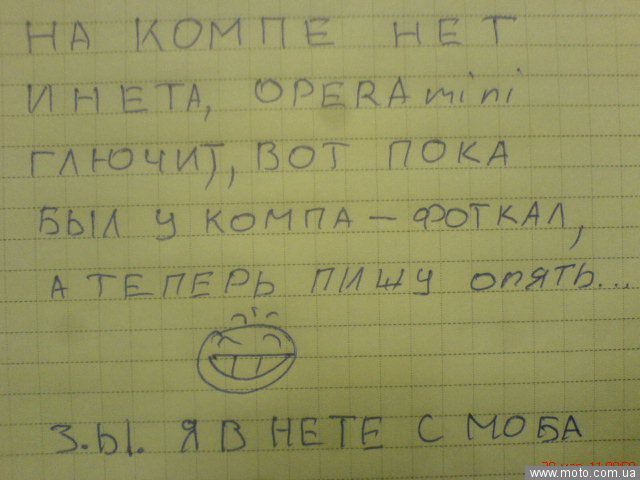 НА КОМПЕ НЕТ
ИНЕТА, OPERA mini
ГЛЮЧИТ, ВОТ ПОКА
БЫЛ У КОМПА – ФОТКАЛ,
А ТЕПЕРЬ ПИШУ ОПЯТЬ...
З.Ы. Я В НЕТЕ С МОБА
www.moto.com.ua